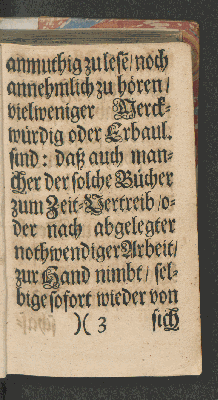 anmuthig zu lese/ noch
annehmlich zu hören/
vielweniger Merck-
würdig oder Erbaul.
sind: daß auch man-
cher der solche Bücher
zum Zeit-Vertreib/ o-
der nach abgelegter
nothwendiger Arbeit/
zur Hand nimbt/ sel-
bige sofort wieder von
)( 3 sich